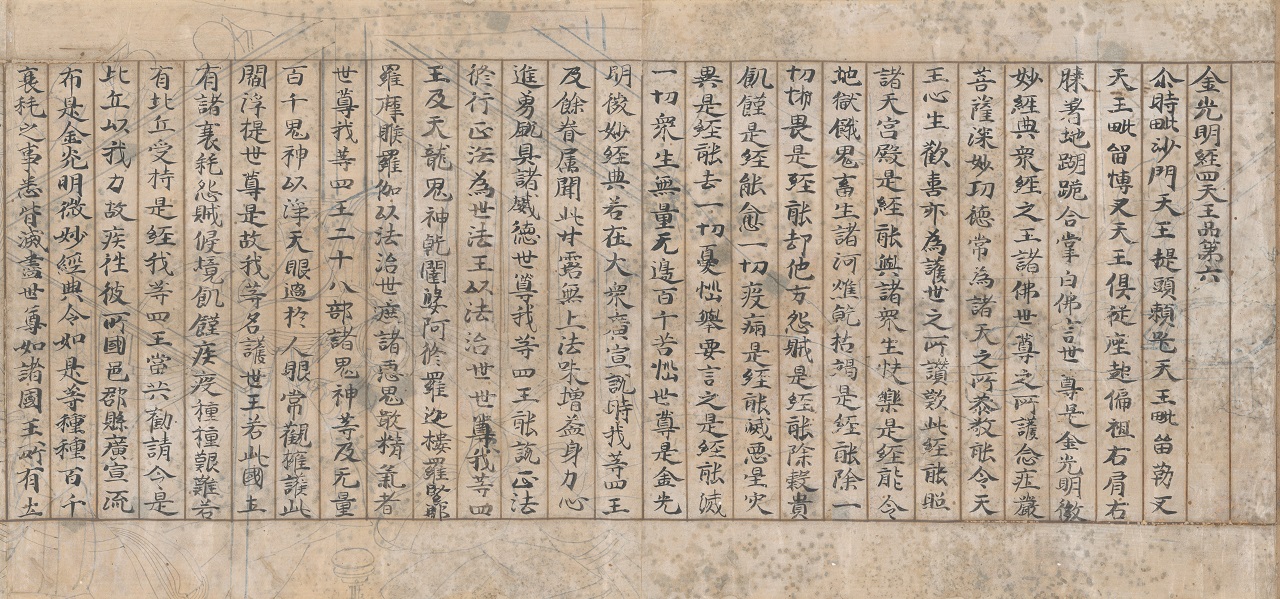 金光明經四天王品第六
尒時毗沙門天王提頭賴吒天王毗留勒叉
天王毗留博叉天王俱從座起偏袒右肩右
膝著地蹦跪合掌白佛言世尊是金光明微
妙經典眾經之王諸佛世尊之所護念莊嚴
菩薩深妙功德常為諸天之所恭敬能令天
王心生歡喜亦為護世之所讚歎此經能照
諸天宮殿是經能與諸眾生快樂是經能令
地獄餓鬼畜生諸河燋乾枯竭是經能除一
切怖畏是經能却他方怨賊是經能除穀貴
飢饉是經能愈一切疫病是經能滅惡星灾
異是經能去一切憂惱舉要言之是經能滅
一切眾生無量无邊百千苦惱世尊是金光
明微妙經典若在大眾廣宣說時我等四王
及餘眷屬聞此甘露無上法味增益身力心
進勇銳具諸威德世尊我等四王能說正法
脩行正法為世法王以法治世世尊我等四
王及天龍鬼神乾闥婆阿脩羅迦樓羅緊那
羅摩睺羅伽以法治世遮諸惡鬼噉精氣者
世尊我等四王二十八部諸鬼神等及无量
百千鬼神以淨天眼過於人眼常觀擁護此
閻浮提世尊是故我等名護世王若此國土
有諸衰耗怨賊侵境飢饉疾疫種種艱難若
有比丘受持是經我等四王當共勸請令是
比丘以我力故疾往彼所國邑郡縣廣宣流
布是金光明微妙經典令如是等種種百千
衰耗之事悉皆滅盡世尊如諸國王所有土